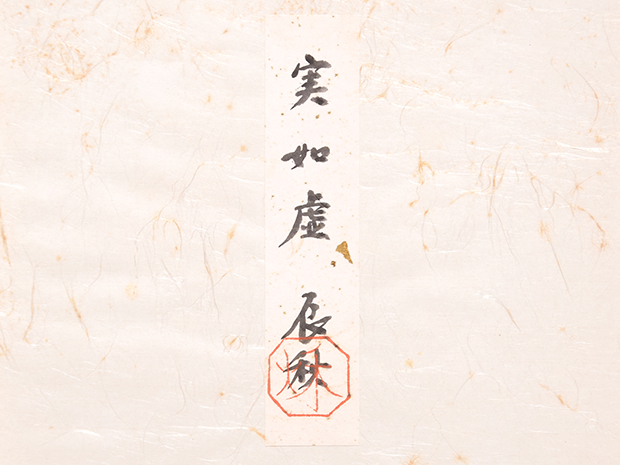 実如虚 辰秋